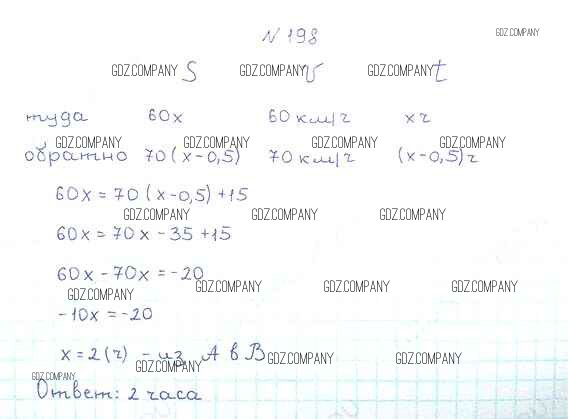 N 198
GDZ.COMPANY
GDZ.COMPANY S GDZ.COMPANY v GDZ.COMPANY t
туда 60x 60 км/ч x ч
GDZ.COMPANY GDZ.COMPANY GDZ.COMPANY GDZ.COMPANY
обратно 70(x-0,5) 70 км/ч (x-0,5)ч
60x = 70(x-0,5)+15
GDZ.COMPANY GDZ.COMPANY GDZ.COMPANY
60x = 70x - 35 + 15
60x - 70x = -20
GDZ.COMPANY GDZ.COMPANY GDZ.COMPANY GDZ.COMPANY
-10x = -20
x = 2 (ч) - из A в B
GDZ.COMPANY GDZ.COMPANY GDZ.COMPANY
GDZ.COMPANY
Ответ: 2 часа